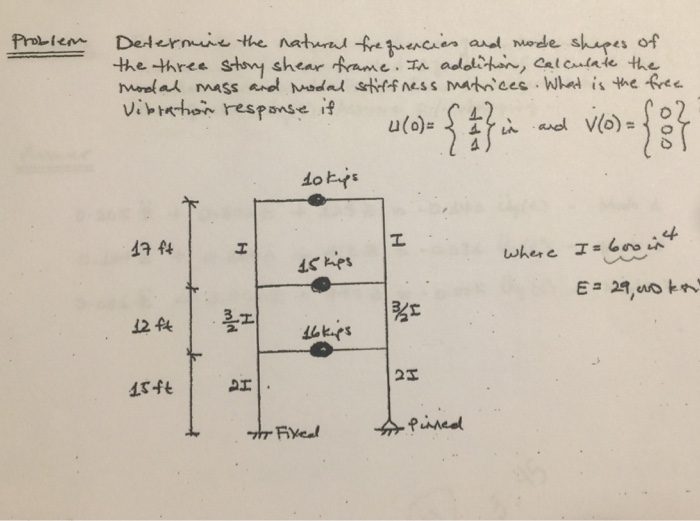 Problem Determine the natural frequencies and mode shapes of
the three story shear frame. In addition, calculate the
modal mass and modal stiffness matrices. What is the free
Vibration response if u(0) = { 1 1 1 } in and v(0) = { 0 0 0 }
10 kips
17 ft I I where I = 600 in^4
15 kips
E = 29,000
12 ft 3/2 I 3/2 I
16 kips
15 ft 2I 2I
Fixed Pinned